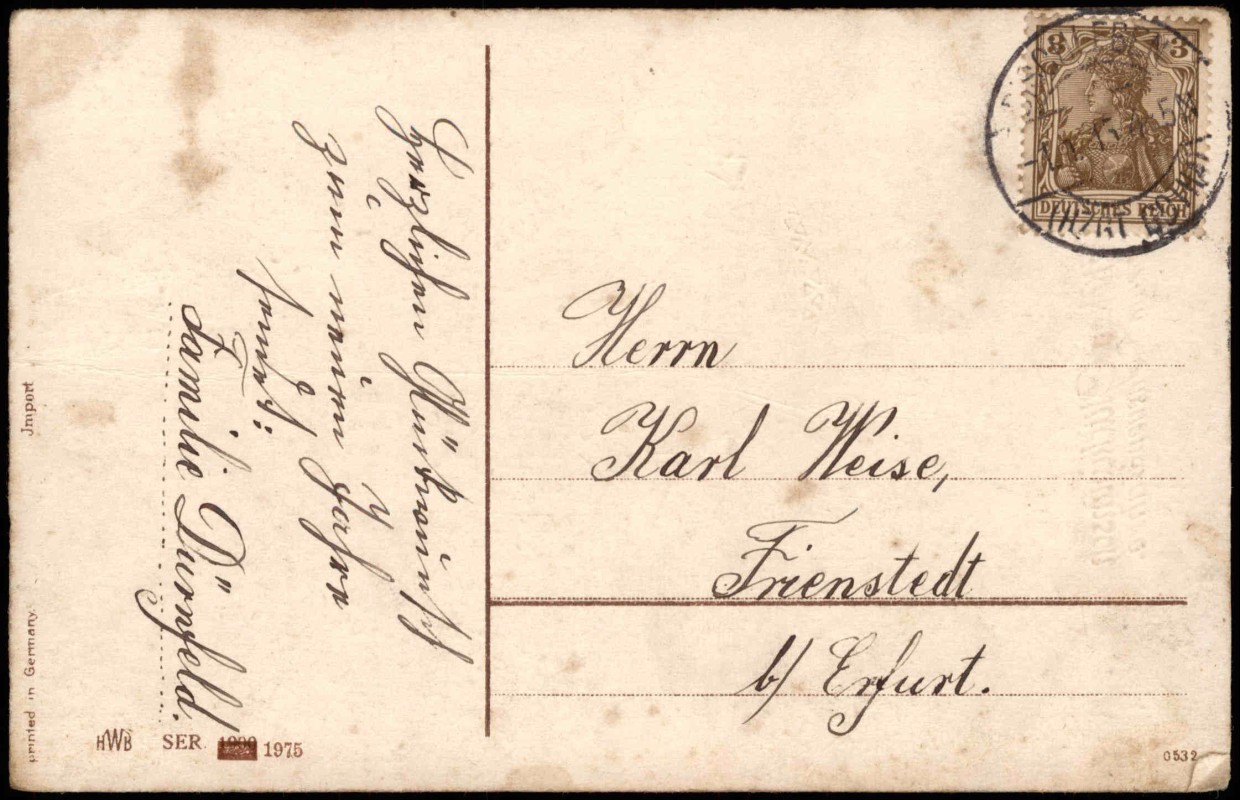 Herzlichen Glückwunsch
zum neuen Jahre
sendet:
Familie Dürrfeld.
Herrn
Karl Weise,
Frienstedt
b/ Erfurt.
3 3
DEUTSCHES REICH
Import
printed in Germany
HWB SER. 1975
0532